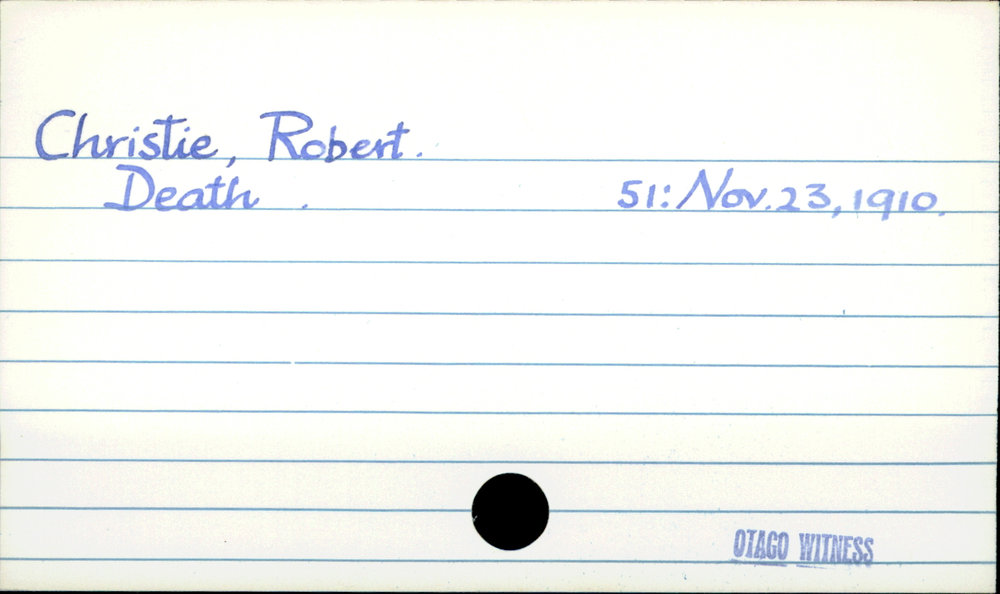 Christie, Robert.
Death . 51: Nov. 23, 1910.
OTAGO WITNESS